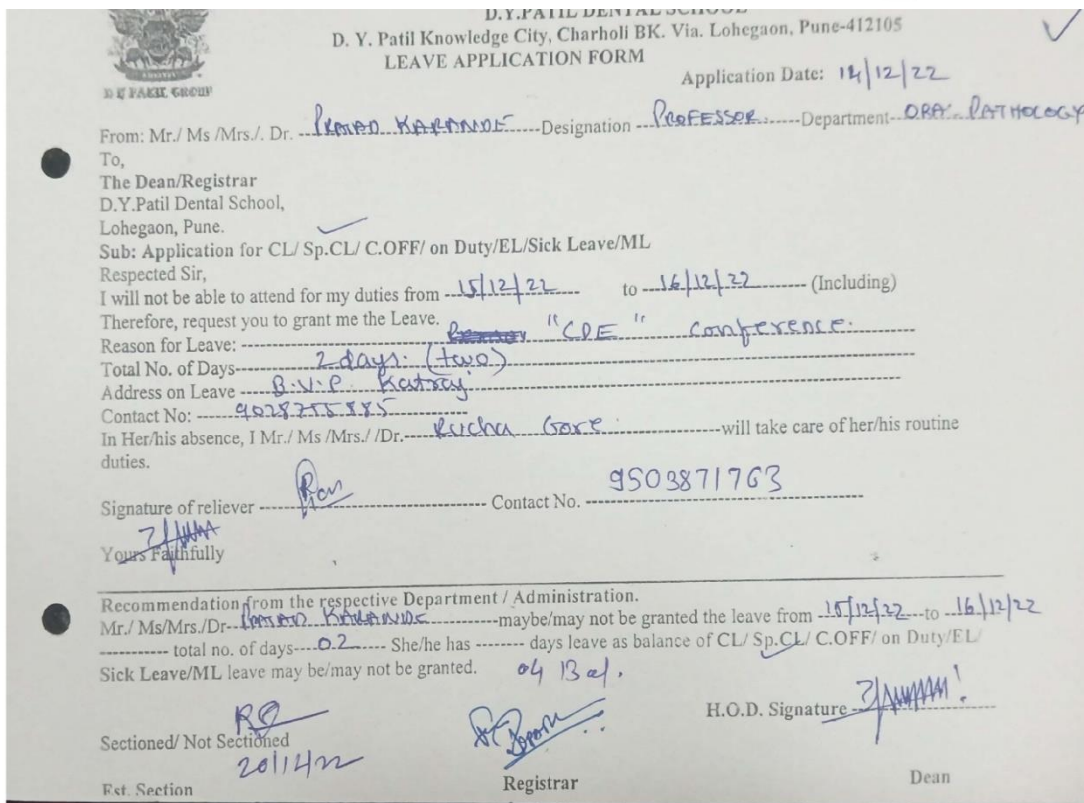 D.Y.PATIL DENTAL SCHOOL
D. Y. Patil Knowledge City, Charholi BK. Via. Lohegaon, Pune-412105
LEAVE APPLICATION FORM
Application Date: 14/12/22
D Y PATIL GROUP
From: Mr./ Ms /Mrs./. Dr. KARANDE Designation PROFESSOR Department ORAL PATHOLOGY
To,
The Dean/Registrar
D.Y.Patil Dental School,
Lohegaon, Pune.
Sub: Application for CL/ Sp.CL/ C.OFF/ on Duty/EL/Sick Leave/ML
Respected Sir,
I will not be able to attend for my duties from 15/12/22 to 16/12/22 (Including)
Therefore, request you to grant me the Leave.
Reason for Leave: "CDE" conference.
Total No. of Days 2 days. (two)
Address on Leave B.V.P. Katraj
Contact No: 9028755885
In Her/his absence, I Mr./ Ms /Mrs./ /Dr. Rucha Gore will take care of her/his routine
duties.
Signature of reliever Contact No. 9503871763
Yours Faithfully
Recommendation from the respective Department / Administration.
Mr./ Ms/Mrs./Dr KARANDE maybe/may not be granted the leave from 15/12/22 to 16/12/22
total no. of days 02 She/he has days leave as balance of CL/ Sp.CL/ C.OFF/ on Duty/EL/
Sick Leave/ML leave may be/may not be granted. 04 Bal.
H.O.D. Signature
Sectioned/ Not Sectioned
Est. Section Registrar Dean